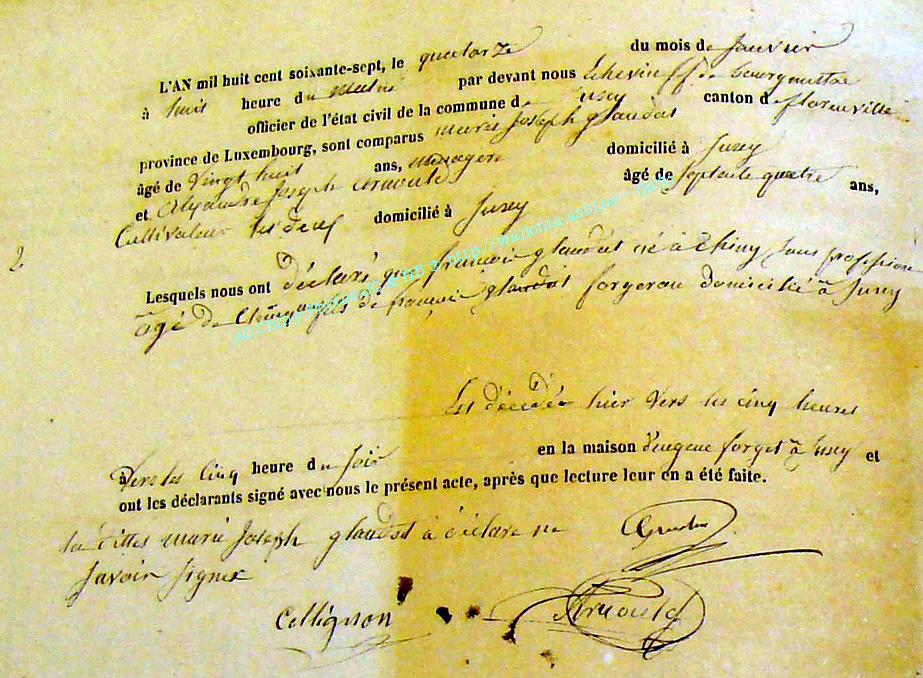 L'AN mil huit cent soixante-sept, le quatorze du mois de Janvier
à huit heure du matin par devant nous Echevin ff de bourgmestre
officier de l'état civil de la commune de Jusey canton de florenville
province de Luxembourg, sont comparus marie Joseph glaudot
âgé de Vingt huit ans, menagere domicilié à Jusey
et Alexandre Joseph arnould âgé de Septante quatre ans,
Cultivateur domicilié à Jusey
Lesquels nous ont déclaré que francois glaudot né à Chiny sans profession
âgé de Cinquante fils de francois glaudot forgeron Domicilié à Jusey
Est décédé hier vers les cinq heures
à vers les cinq heure du soir en la maison d'eugene forget à Jusey et
ont les déclarants signé avec nous le présent acte, après que lecture leur en a été faite.
la dittes marie Joseph glaudot à déclaré ne
savoir signer
Collignon Arnould